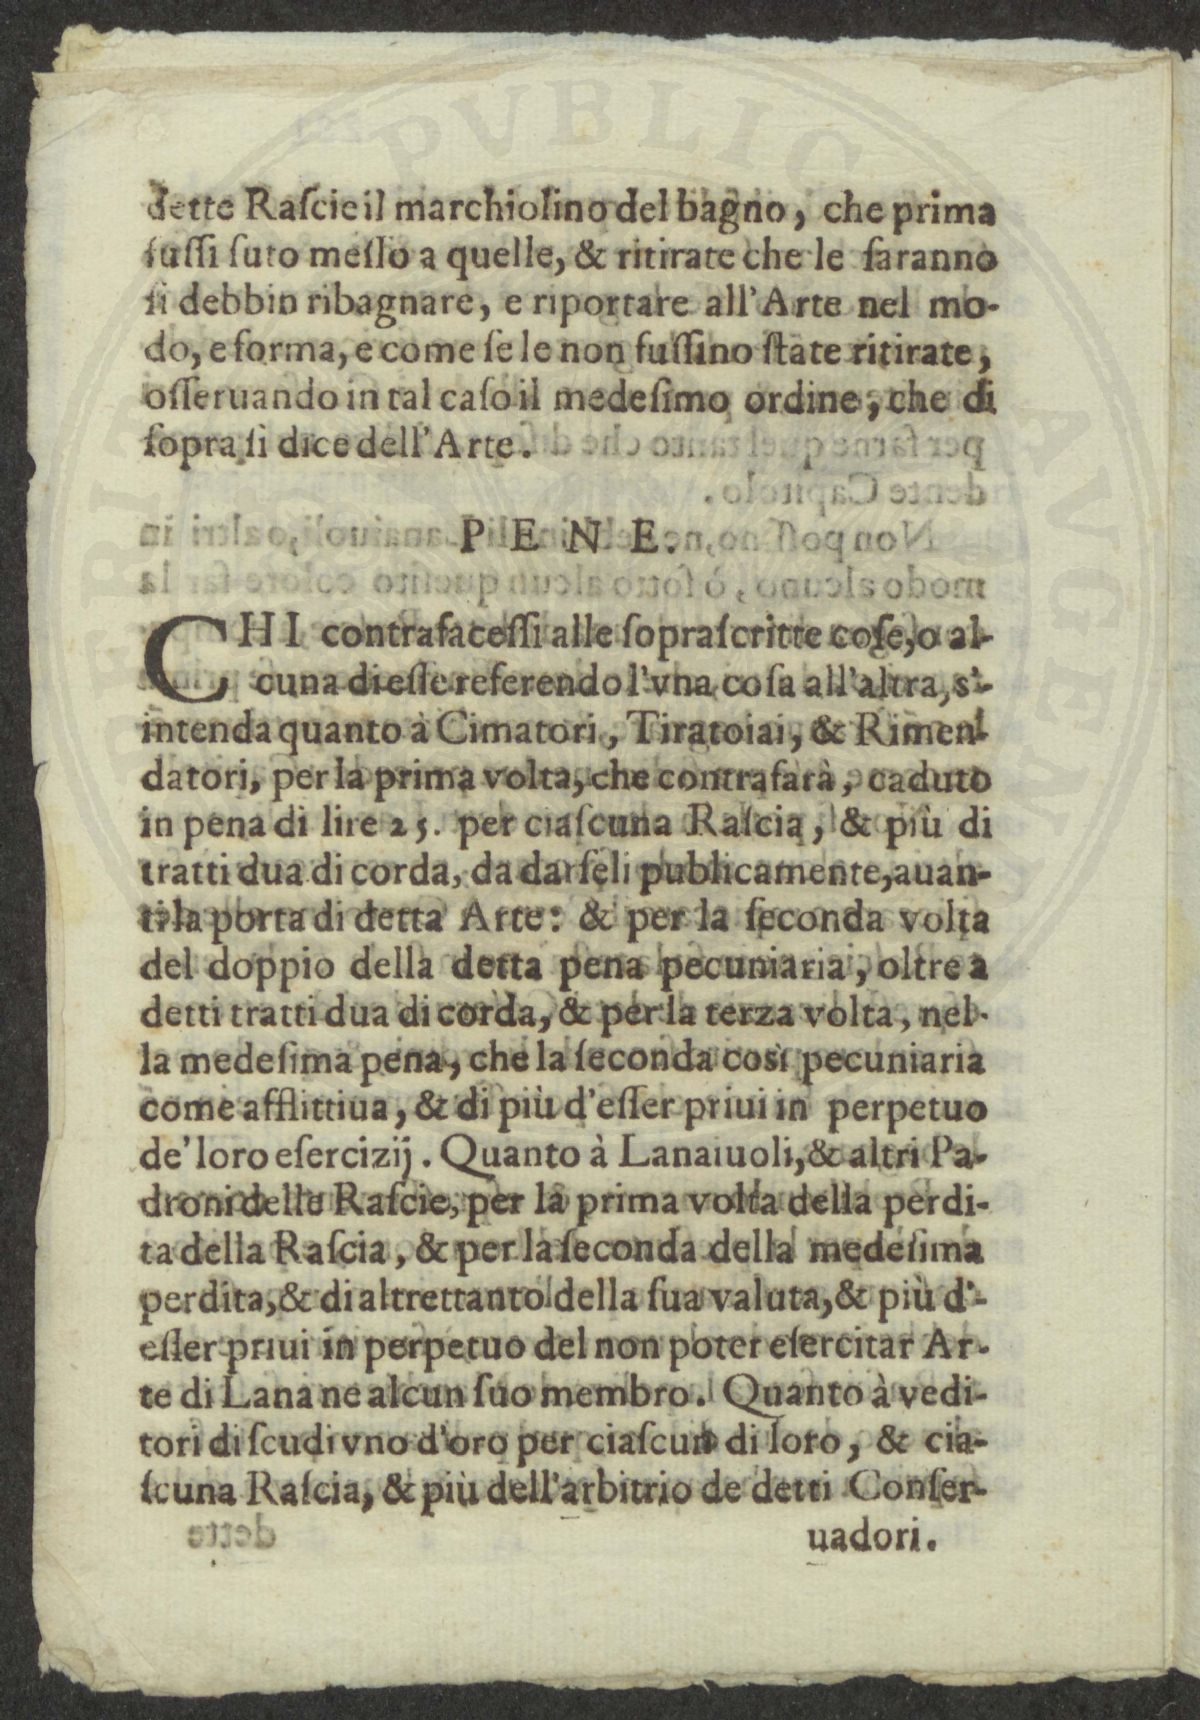 dette Raſcie il marchiolino del bagno, che prima
fuſſi ſuto meſſo a quelle, & ritirate che le ſaranno
ſi debbin ribagnare, e riportare all'Arte nel mo-
do, e forma, e come ſe le non fuſſino ſtate ritirate,
oſſeruando in tal caſo il medeſimo ordine, che di
ſopra ſi dice dell'Arte.
PENE.
CHI contrafaceſſi alle ſopraſcritte coſe, o al-
cuna di eſſe referendo l'vna coſa all'altra, s'-
intenda quanto à Cimatori, Tiratoiai, & Rimen-
datori, per la prima volta, che contrafarà, caduto
in pena di lire 25. per ciaſcuna Raſcia, & più di
tratti dua di corda, da darſeli publicamente, auan-
ti la porta di detta Arte: & per la ſeconda volta
del doppio della detta pena pecuniaria, oltre a
detti tratti dua di corda, & per la terza volta, nel-
la medeſima pena, che la ſeconda così pecuniaria
come afflittiua, & di più d'eſſer priui in perpetuo
de' loro eſercizij. Quanto à Lanaiuoli, & altri Pa-
droni delle Raſcie, per la prima volta della perdi-
ta della Raſcia, & per la ſeconda della medeſima
perdita, & di altrettanto della ſua valuta, & più d'-
eſſer priui in perpetuo del non poter eſercitar Ar-
te di Lana ne alcun ſuo membro. Quanto à vedi-
tori di ſcudi vno d'oro per ciaſcun di loro, & cia-
ſcuna Raſcia, & più dell'arbitrio de detti Conſer-
uadori.